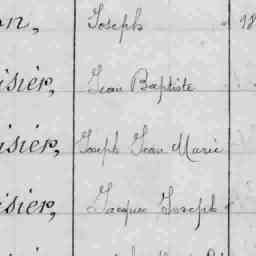 on, Joseph 18
isier, Jean Baptiste
isier, Joseph Jean Marie
isier, Jacques Joseph